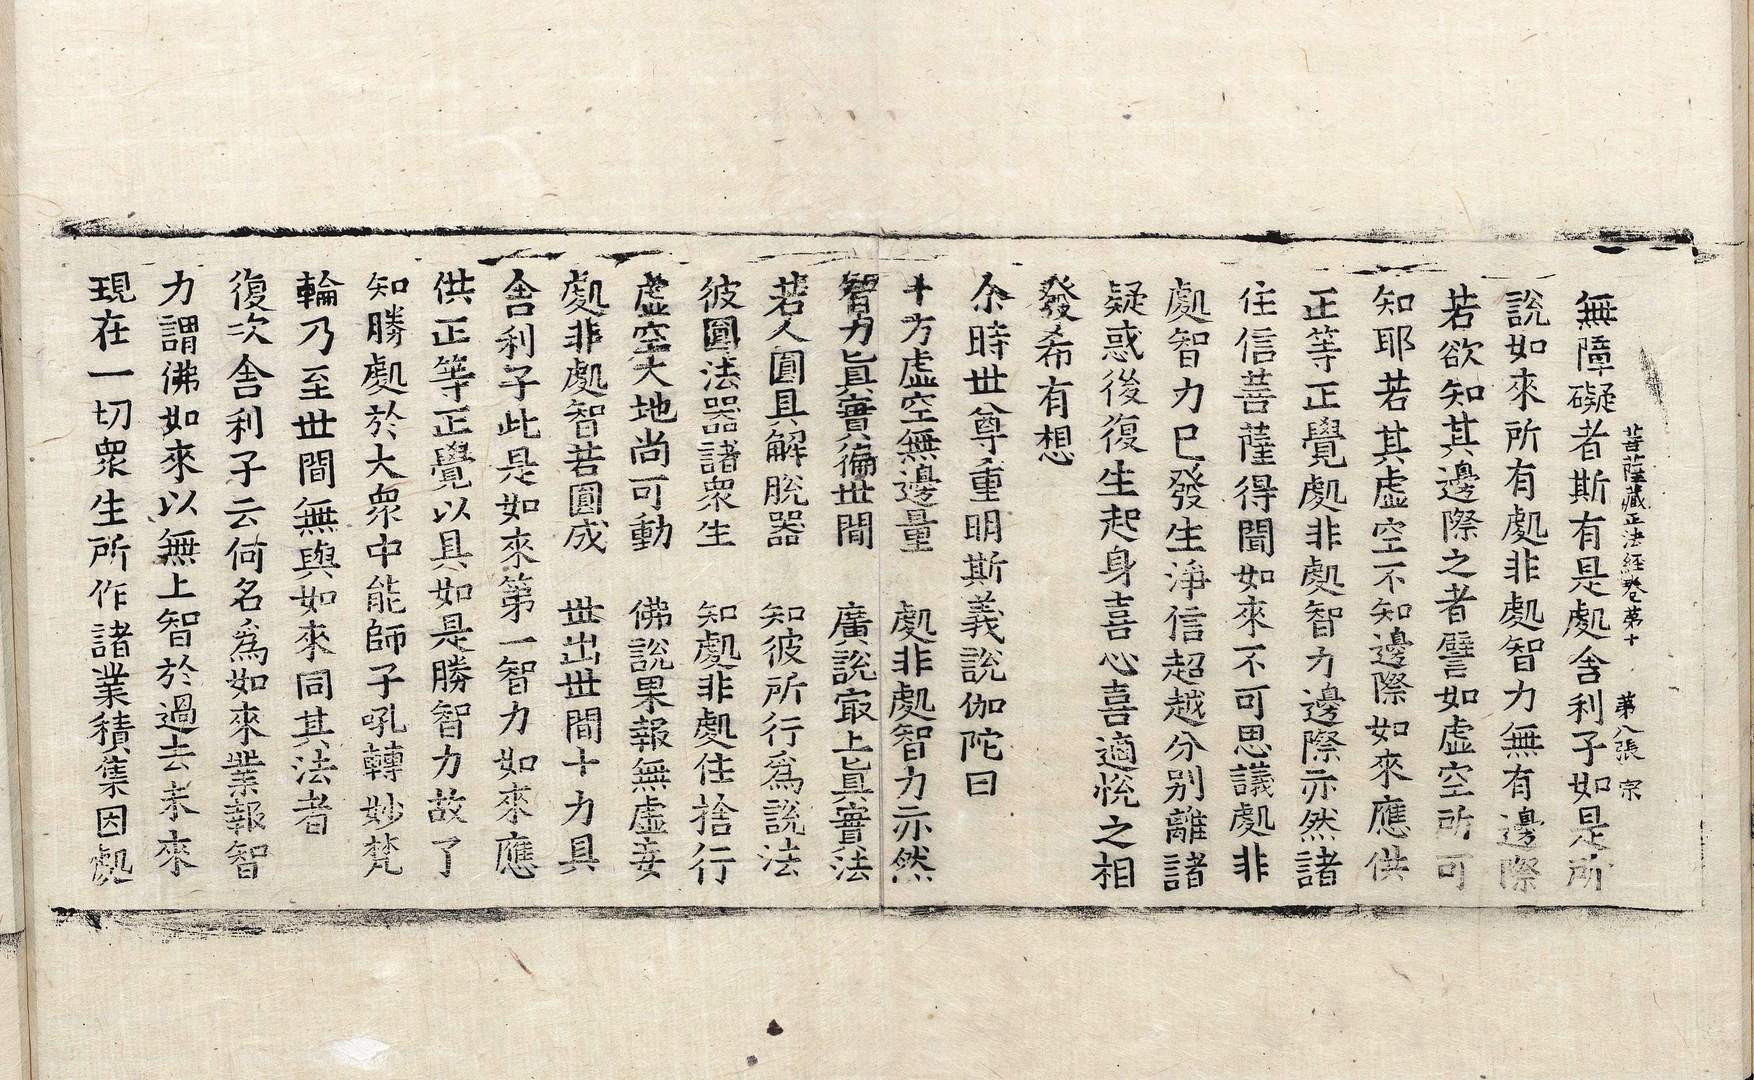 菩薩藏正法經卷第十　第八張　宗
無障礙者斯有是處舍利子如是所
說如來所有處非處智力無有邊際
若欲知其邊際之者譬如虛空所可
知耶若其虛空不知邊際如來應供
正等正覺處非處智力邊際亦然諸
住信菩薩得聞如來不可思議處非
處智力已發生淨信超越分別離諸
疑惑後復生起身喜心喜適悅之相
發希有想
尒時世尊重明斯義說伽陀曰
十方虛空無邊量　處非處智力亦然
智力眞實徧世間　廣說冣上眞實法
若人圓具解脫器　知彼所行爲說法
彼圓法器諸衆生　知處非處住捨行
虛空大地尚可動　佛說果報無虛妄
處非處智若圓成　世出世間十力具
舍利子此是如來第一智力如來應
供正等正覺以具如是勝智力故了
知勝處於大衆中能師子吼轉妙梵
輪乃至世間無與如來同其法者
復次舍利子云何名爲如來業報智
力謂佛如來以無上智於過去未來
現在一切衆生所作諸業積集因處